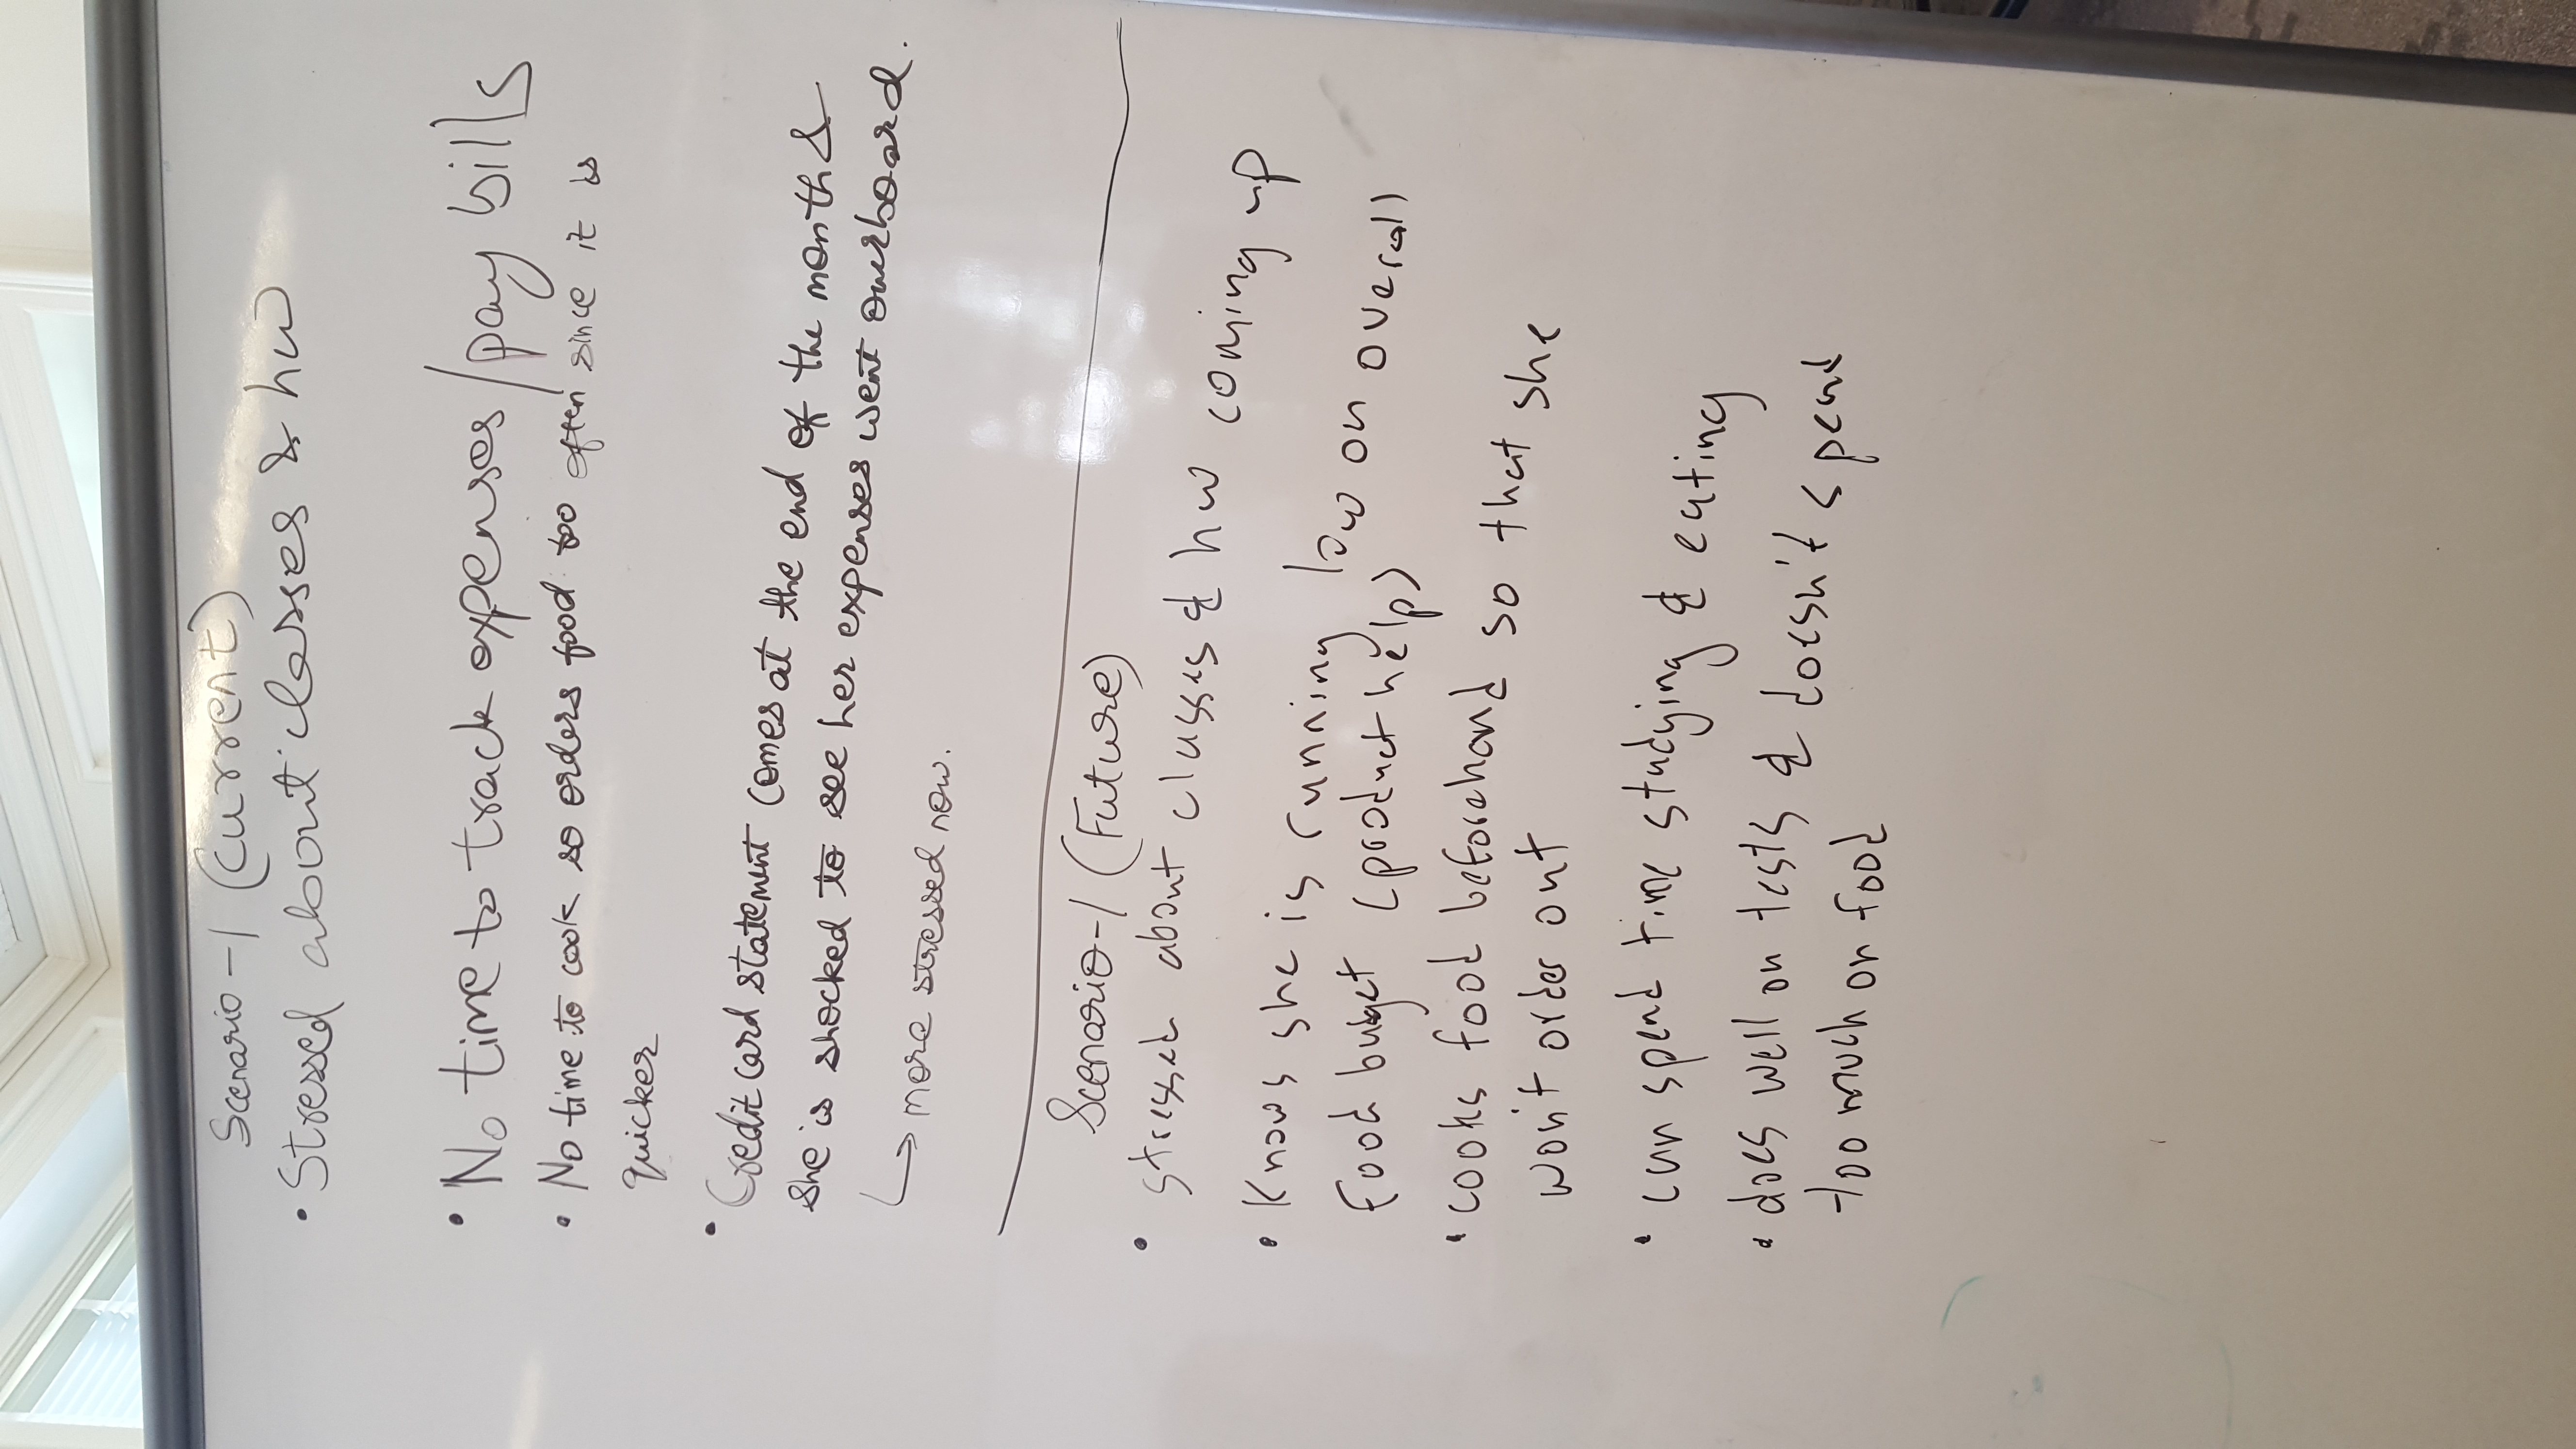 Scenario-1 (Current)
• Stressed about classes & hw
• No time to track expenses/pay bills
• No time to cook so orders food too often since it is
quicker
• Credit card statement comes at the end of the month &
She is shocked to see her expenses went overboard.
↳ more stressed now.
Scenario-1 (Future)
• stressed about classes & hw coming up
• Knows she is running low on overall
food buget (product help)
• cooks food beforehand so that she
won't order out
• can spend time studying & eating
• does well on tests & doesn't spend
too much on food